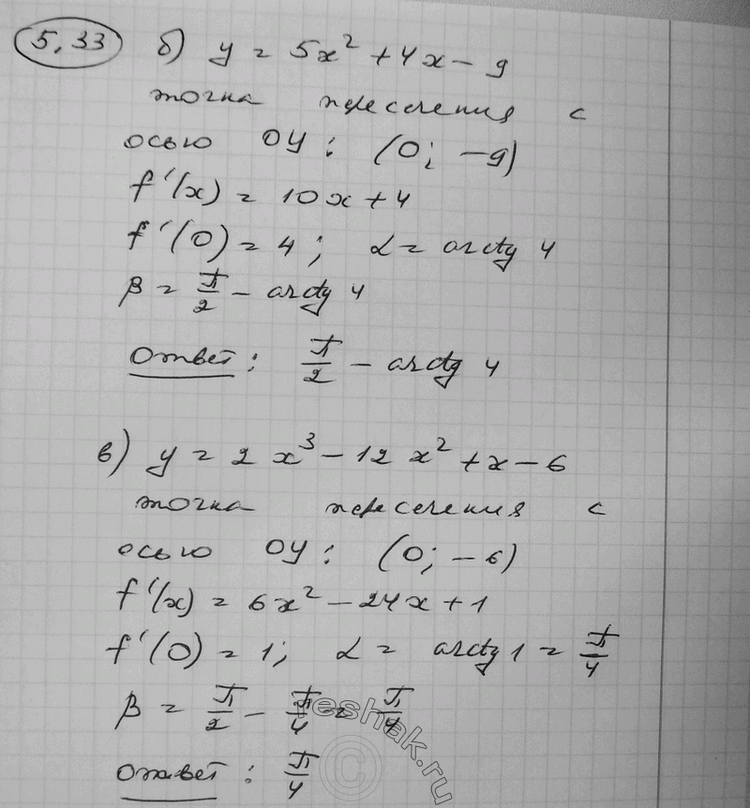 5,33 б) y = 5x² + 4x - 9
точка пересечения с
осью OY: (0; -9)
f'(x) = 10x + 4
f'(0) = 4; α = arctg 4
β = π/2 - arctg 4
Ответ: π/2 - arctg 4
в) y = 2x³ - 12x² + x - 6
точка пересечения с
осью OY: (0; -6)
f'(x) = 6x² - 24x + 1
f'(0) = 1; α = arctg 1 = π/4
β = π/2 - π/4 = π/4
Ответ: π/4
©reshak.ru